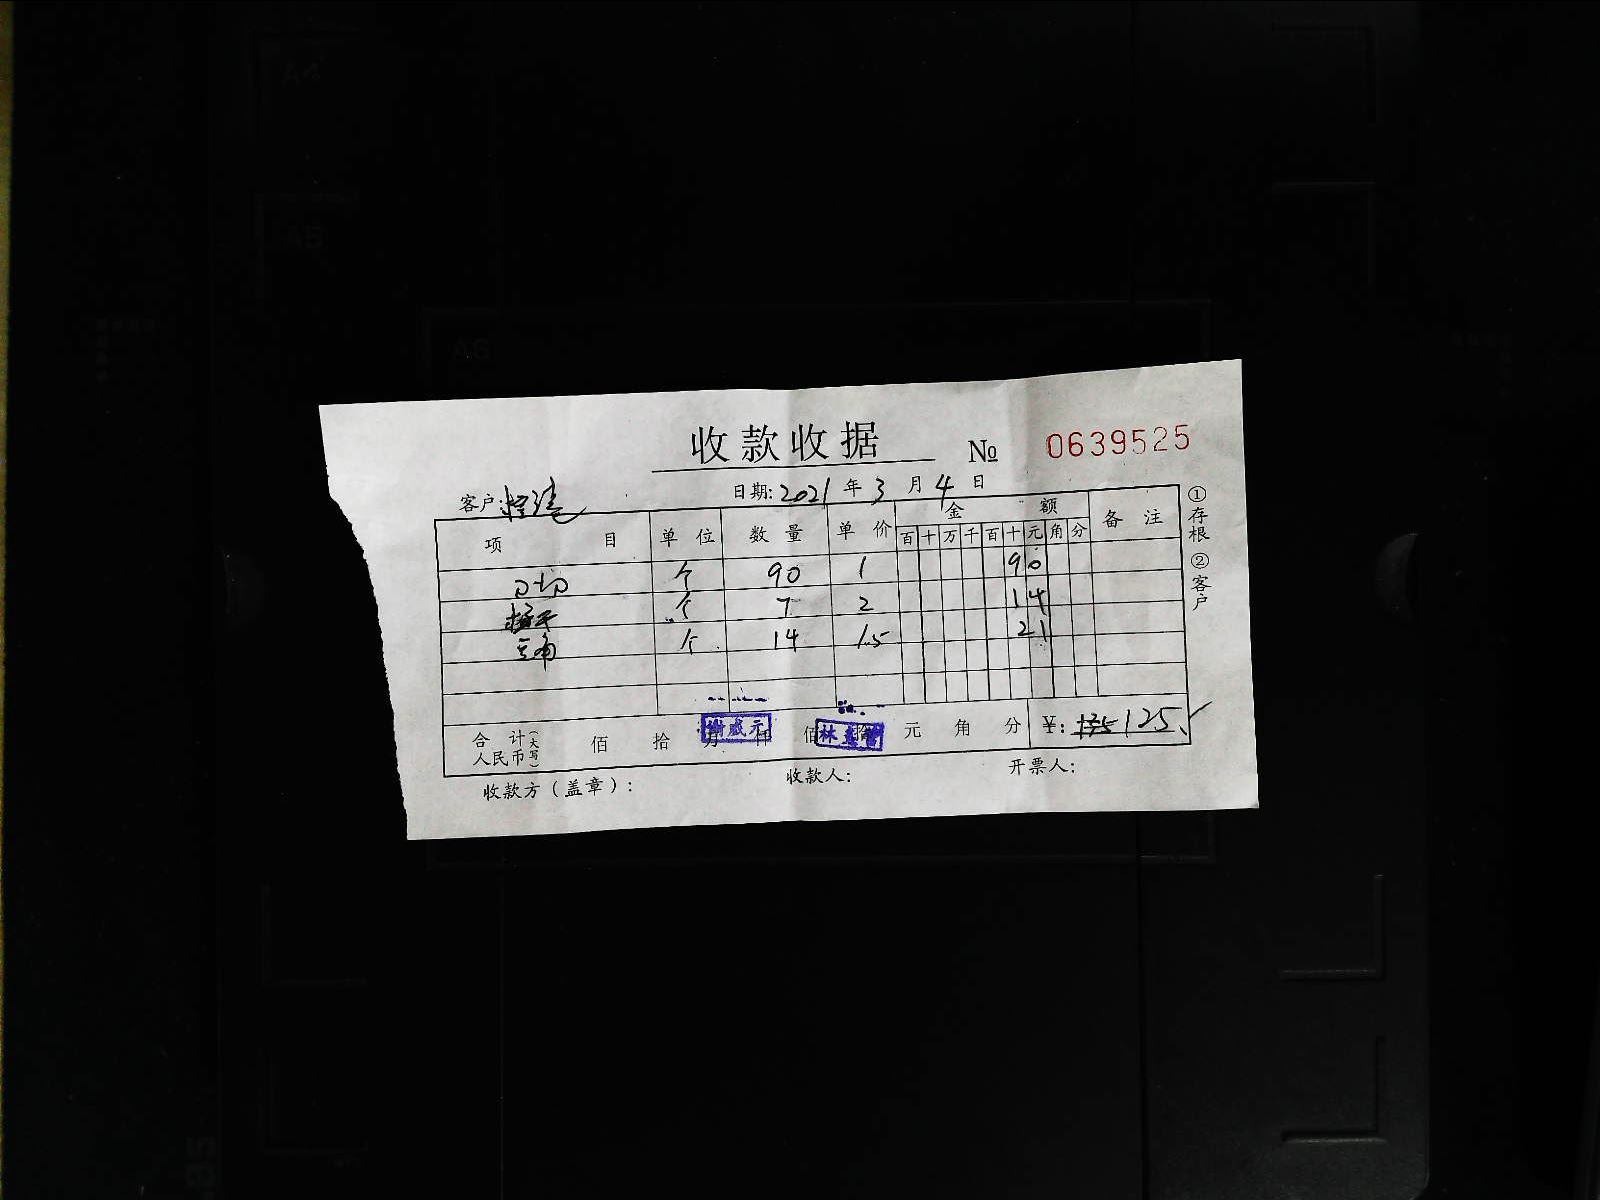 收款收据 № 0639525
客户: 日期: 2021 年 3 月 4 日
项目 单位 数量 单价 金额 备注
百 十 万 千 百 十 元 角 分
个 90 1 90
个 7 2 14
豆角 个 14 1.5 21
合计 人民币(大写) 佰 拾 万 仟 佰 拾 元 角 分 ¥: 125
收款方(盖章): 收款人: 开票人:
①存根 ②客户
A5
A6